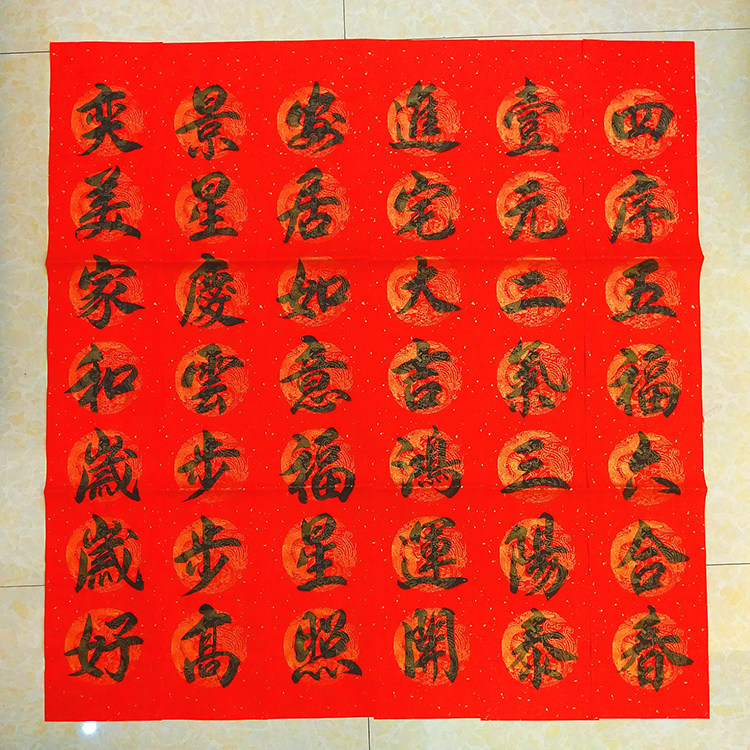 四序五福六合春
壹元二氣三陽泰
進宅大吉鴻運開
安居如意福星照
景星慶雲步步高
奕美家和歲歲好